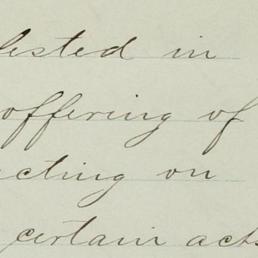 lested in
offering of
cting on
certain acts